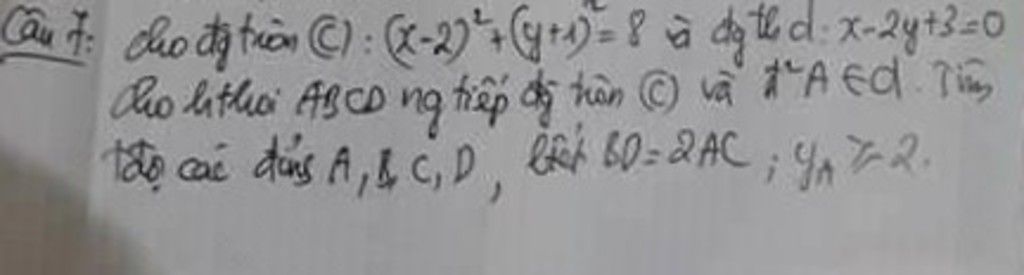 Câu 7: Cho đg tròn (C): (x-2)² + (y+1)² = 8 và đg th d: x-2y+3=0
Cho h thoi ABCD ng tiếp đg tròn (C) và A ∈ d. Tìm
tđộ các đỉnh A, B, C, D, biết BD = 2AC; y_A ≥ 2.